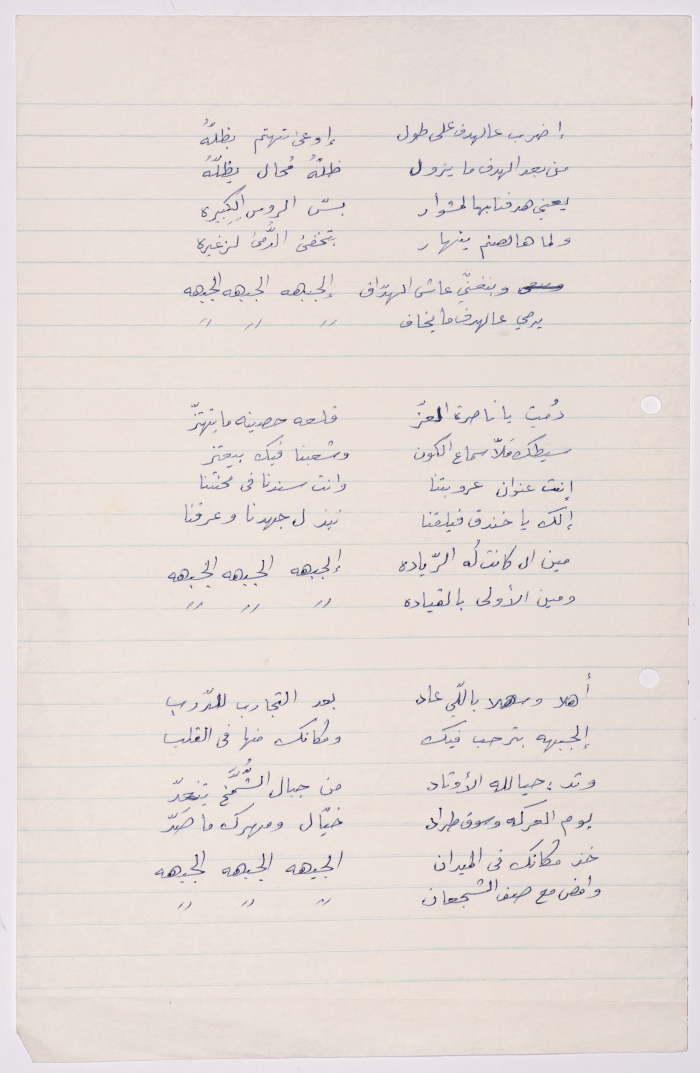 إضرب عالهدف على طول    إوعى تهتم بظلُّه
من بعد الهدف ما يزول    ظلُّهُ مُحال يظلُّهُ
يعني هدفنا بهالمشوار    بسّ الروس الكِبيره
ولما هالصنم ينهار    بتخفى الدُّمى لزغيره
وبنغنّي عاش الهدّاف    إلجبهه الجبهه الجبهه
يرمي عالهدف ما يخاف    〃 〃 〃
دُمتِ يا ناصرة العزّ    قلعه حصينه ما بتهتزّ
سيطك مَلاّ سماع الكون    وشعبنا فيك بيعتز
إنت عنوان عروبتنا    وانت سندنا في محنتنا
إلك يا خندق فيلقنا    نبذل جهدنا وعرقنا
مين ال كانت لُه الرّياده    إلجبهه الجبهه الجبهه
ومين الأولى بالقياده    〃 〃 〃
أهلا وسهلا باللّي عاد    بعد التجارب للدّرب
إلجبهه بترحب فيك    ومكانك منها في القلب
وتد، حيالله الأوتاد    من جبال الشُّمَّخ ينعدّ
يوم المعركه وسوق طراد    خيّال ومهرك ما صَدّ
خذ مكانك في الميدان    الجبهه الجبهه الجبهه
وامض مع صف الشجعان    〃 〃 〃